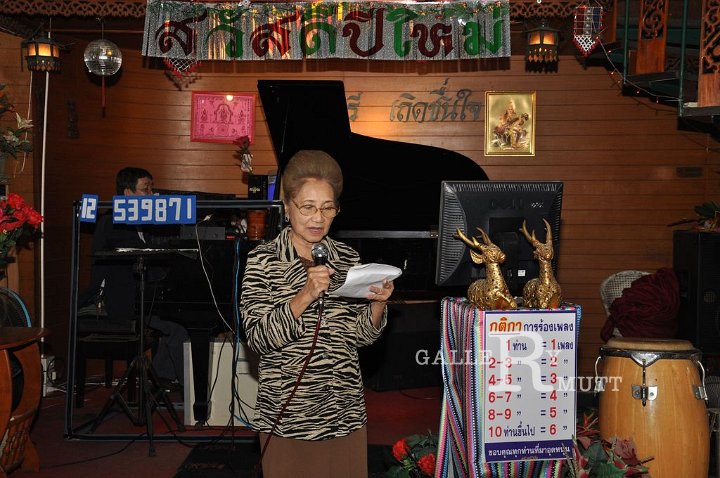 สวัสดีปีใหม่
รี เถิดชื่นใจ
12 539871
DELL
กติกาการร้องเพลง
1 ท่าน = 1 เพลง
2-3 " = 2 "
4-5 " = 3 "
6-7 " = 4 "
8-9 " = 5 "
10 ท่านขึ้นไป = 6 "
ขอบคุณทุกท่านที่มาอุดหนุน
GALLERY MUTT